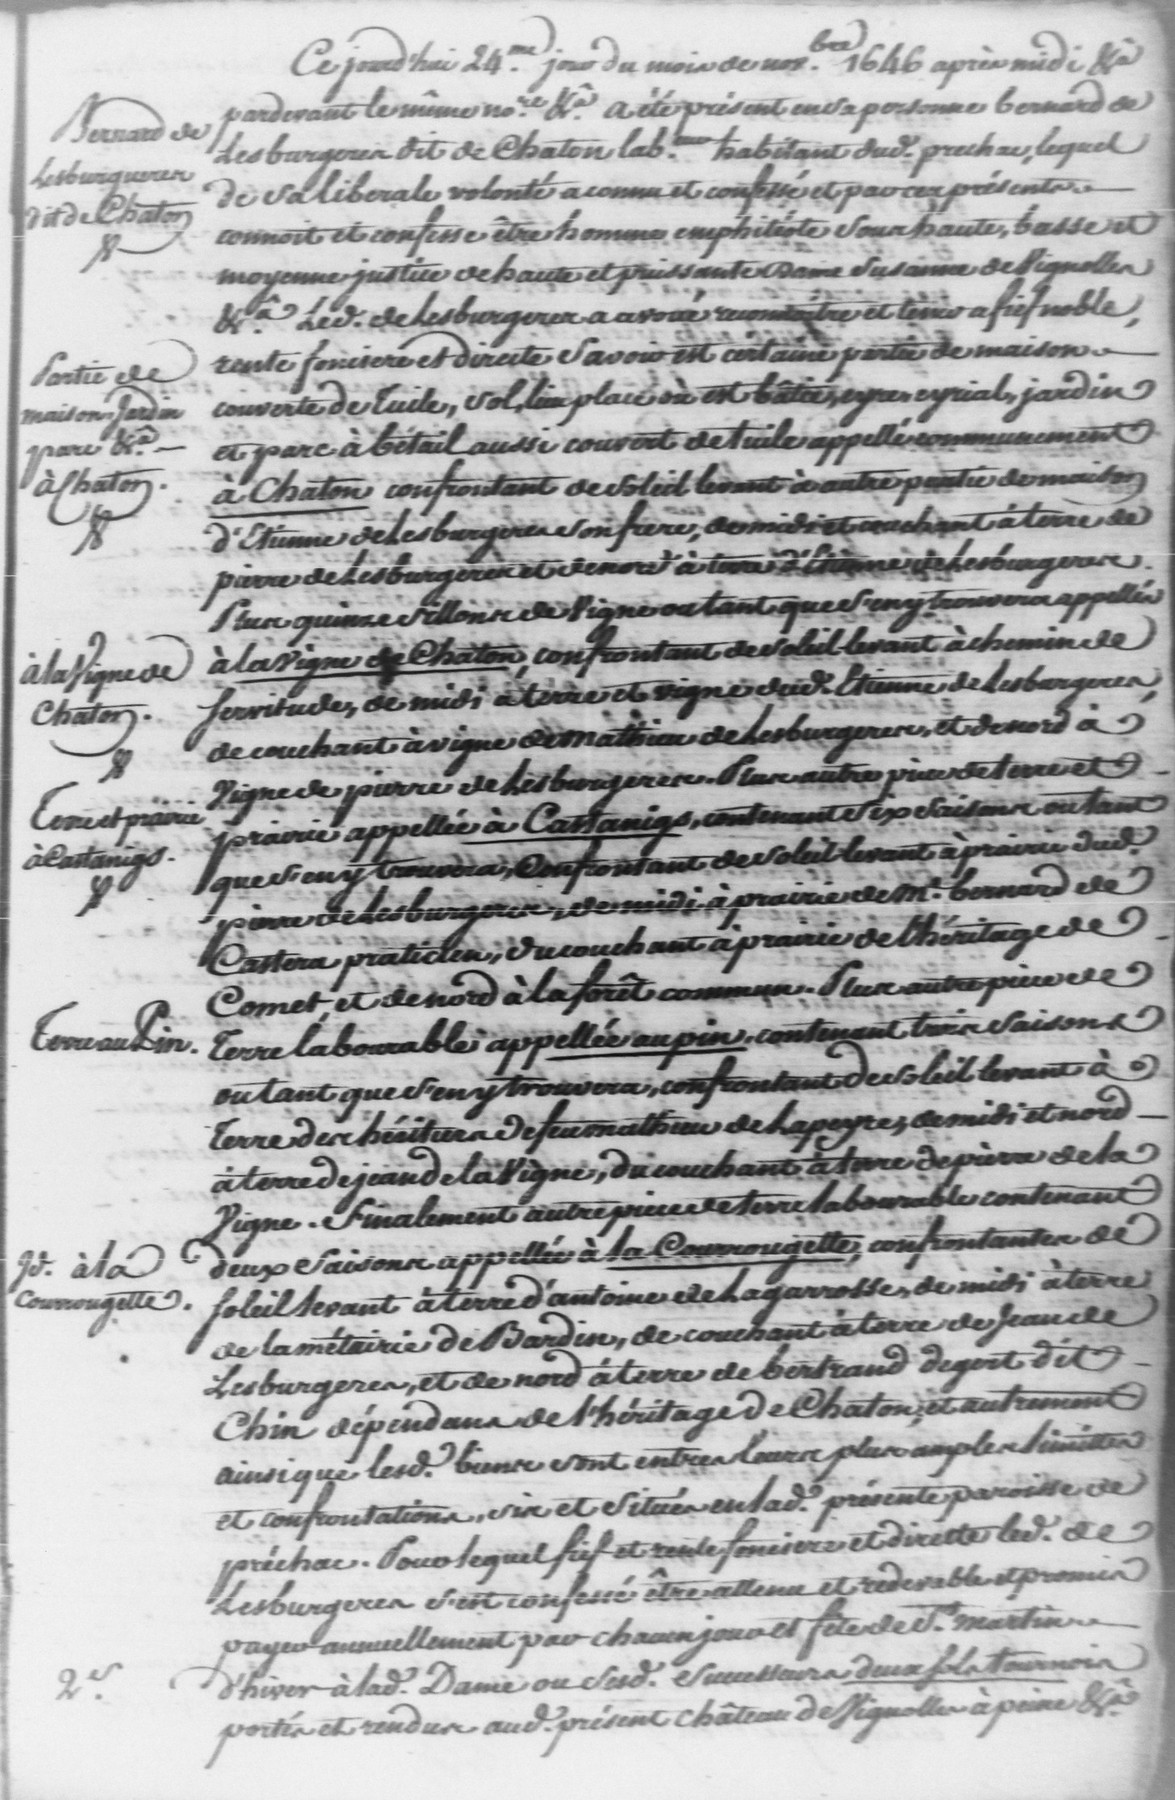 Ce jourd'hui 24.me jour du mois de nov.bre 1646 après midi &a
Bernard de
Lesburgueres
dit de Chaton
pardevant le même no.re &a. a été présent en sa personne bernard de
Lesburgeres dit de Chaton lab.eur habitant dud. prechac, lequel
de sa liberale volonté a connu et confessé et par ces présentes
connoit et confesse être homme emphitéote sous haute, basse et
moyenne justice de haute et puissante Dame Susanne de Vignolles
&a. Led. de Lesburgeres a avoué reconnoitre et tenir a fief noble,
Partie de
maison, Jardin
parc &a.
à Chaton.
rente fonciere et directe Savoir est certaine partie de maison
couverte de Tuile, sol, lieu place où est bâtie, eyre, eyrial, jardin
et parc à bétail aussi couvert de tuile appellé communement
à Chaton confrontant de soleil levant à autre partie de maison
d'Etienne de Lesburgeres son frere, de midi et couchant à terre de
pierre de Lesburgeres et de nord à terre d'Etienne de Lesburgeres.
Plus quinze sillons de Vigne ou tant que s'en y trouvera appellés
à la Vigne de
Chaton.
à la Vigne de Chaton, confrontant de soleil levant à chemin de
servitude, de midi à terre et vigne dud. Etienne de Lesburgeres,
de couchant à vigne de mathieu de Lesburgeres, et de nord à
Vigne de pierre de Lesburgeres. Plus autre piece de terre et
Terre et prairie
à Castanigs.
prairie appellée à Castanigs, contenant six saisons ou tant
que s'en y trouvera, Confrontant de soleil levant à prairie dud.
pierre de Lesburgeres, de midi à prairie de M.e bernard de
Castera praticien, du couchant à prairie de l'héritage de
Comet, et de nord à la forêt commun. Plus autre piece de
Terre au Pin.
Terre labourable appellée au pin, contenant trois saisons
ou tant que s'en y trouvera, confrontant de soleil levant à
Terre des héritiers de feu mathieu de Lapeyre, de midi et nord
à terre de jean de la Vigne, du couchant à terre de pierre de la
Vigne. Finalement autre piece de terre labourable contenant
Id. à la
Courrougette.
deux saisons appellée à la Courrougette, confrontantes de
soleil levant à terre d'antoine de Lagarrosse, de midi à terre
de la métairie de Bardin, de couchant à terre de Jean de
Lesburgeres, et de nord à terre de bertrand degert dit
Chin dépendans de l'héritage de Chaton, et autrement
ainsi que lesd. biens sont entre leurs plus amples limittes
et confrontations, sis et situés en lad. présente paroisse de
préchac. Pour lequel fief et rente fonciere et directte led. de
Lesburgeres s'est confessé être attenu et redevable et promis
payer annuellement par chacun jour et fête de St. martin
2s.
d'hiver à lad. Dame ou sesd. Successeurs deux sols tournois
portés et rendus aud. présent château de Vignolles à peine &a.